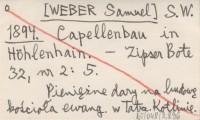 [WEBER Samuel] S.W.
1894. Capellenbau in
Höhlenhain. – Zipser Bote
32, nr 2: 5.
Pieniężne dary na budowę
kościoła ewang. w Tatrz. Kotlinie.